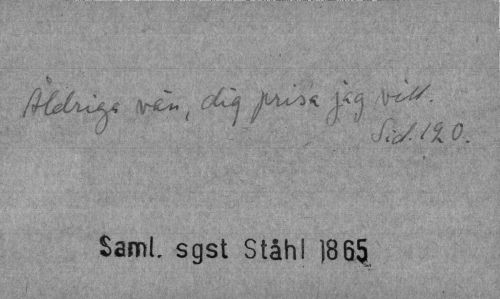 Åldriga vän, dig prisa jag vill.
Sid. 120.
Saml. sgst Ståhl 1865